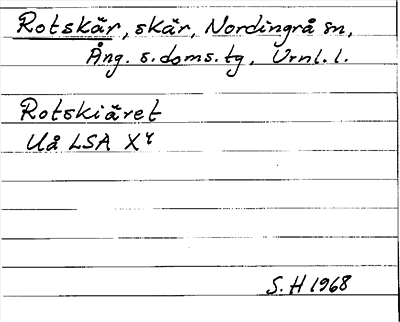 Rotskär, skär, Nordingrå sn,
Ång. s. doms. tg, Vrnl. l.
Rotskiäret
Uå LSA X4
S. H 1968